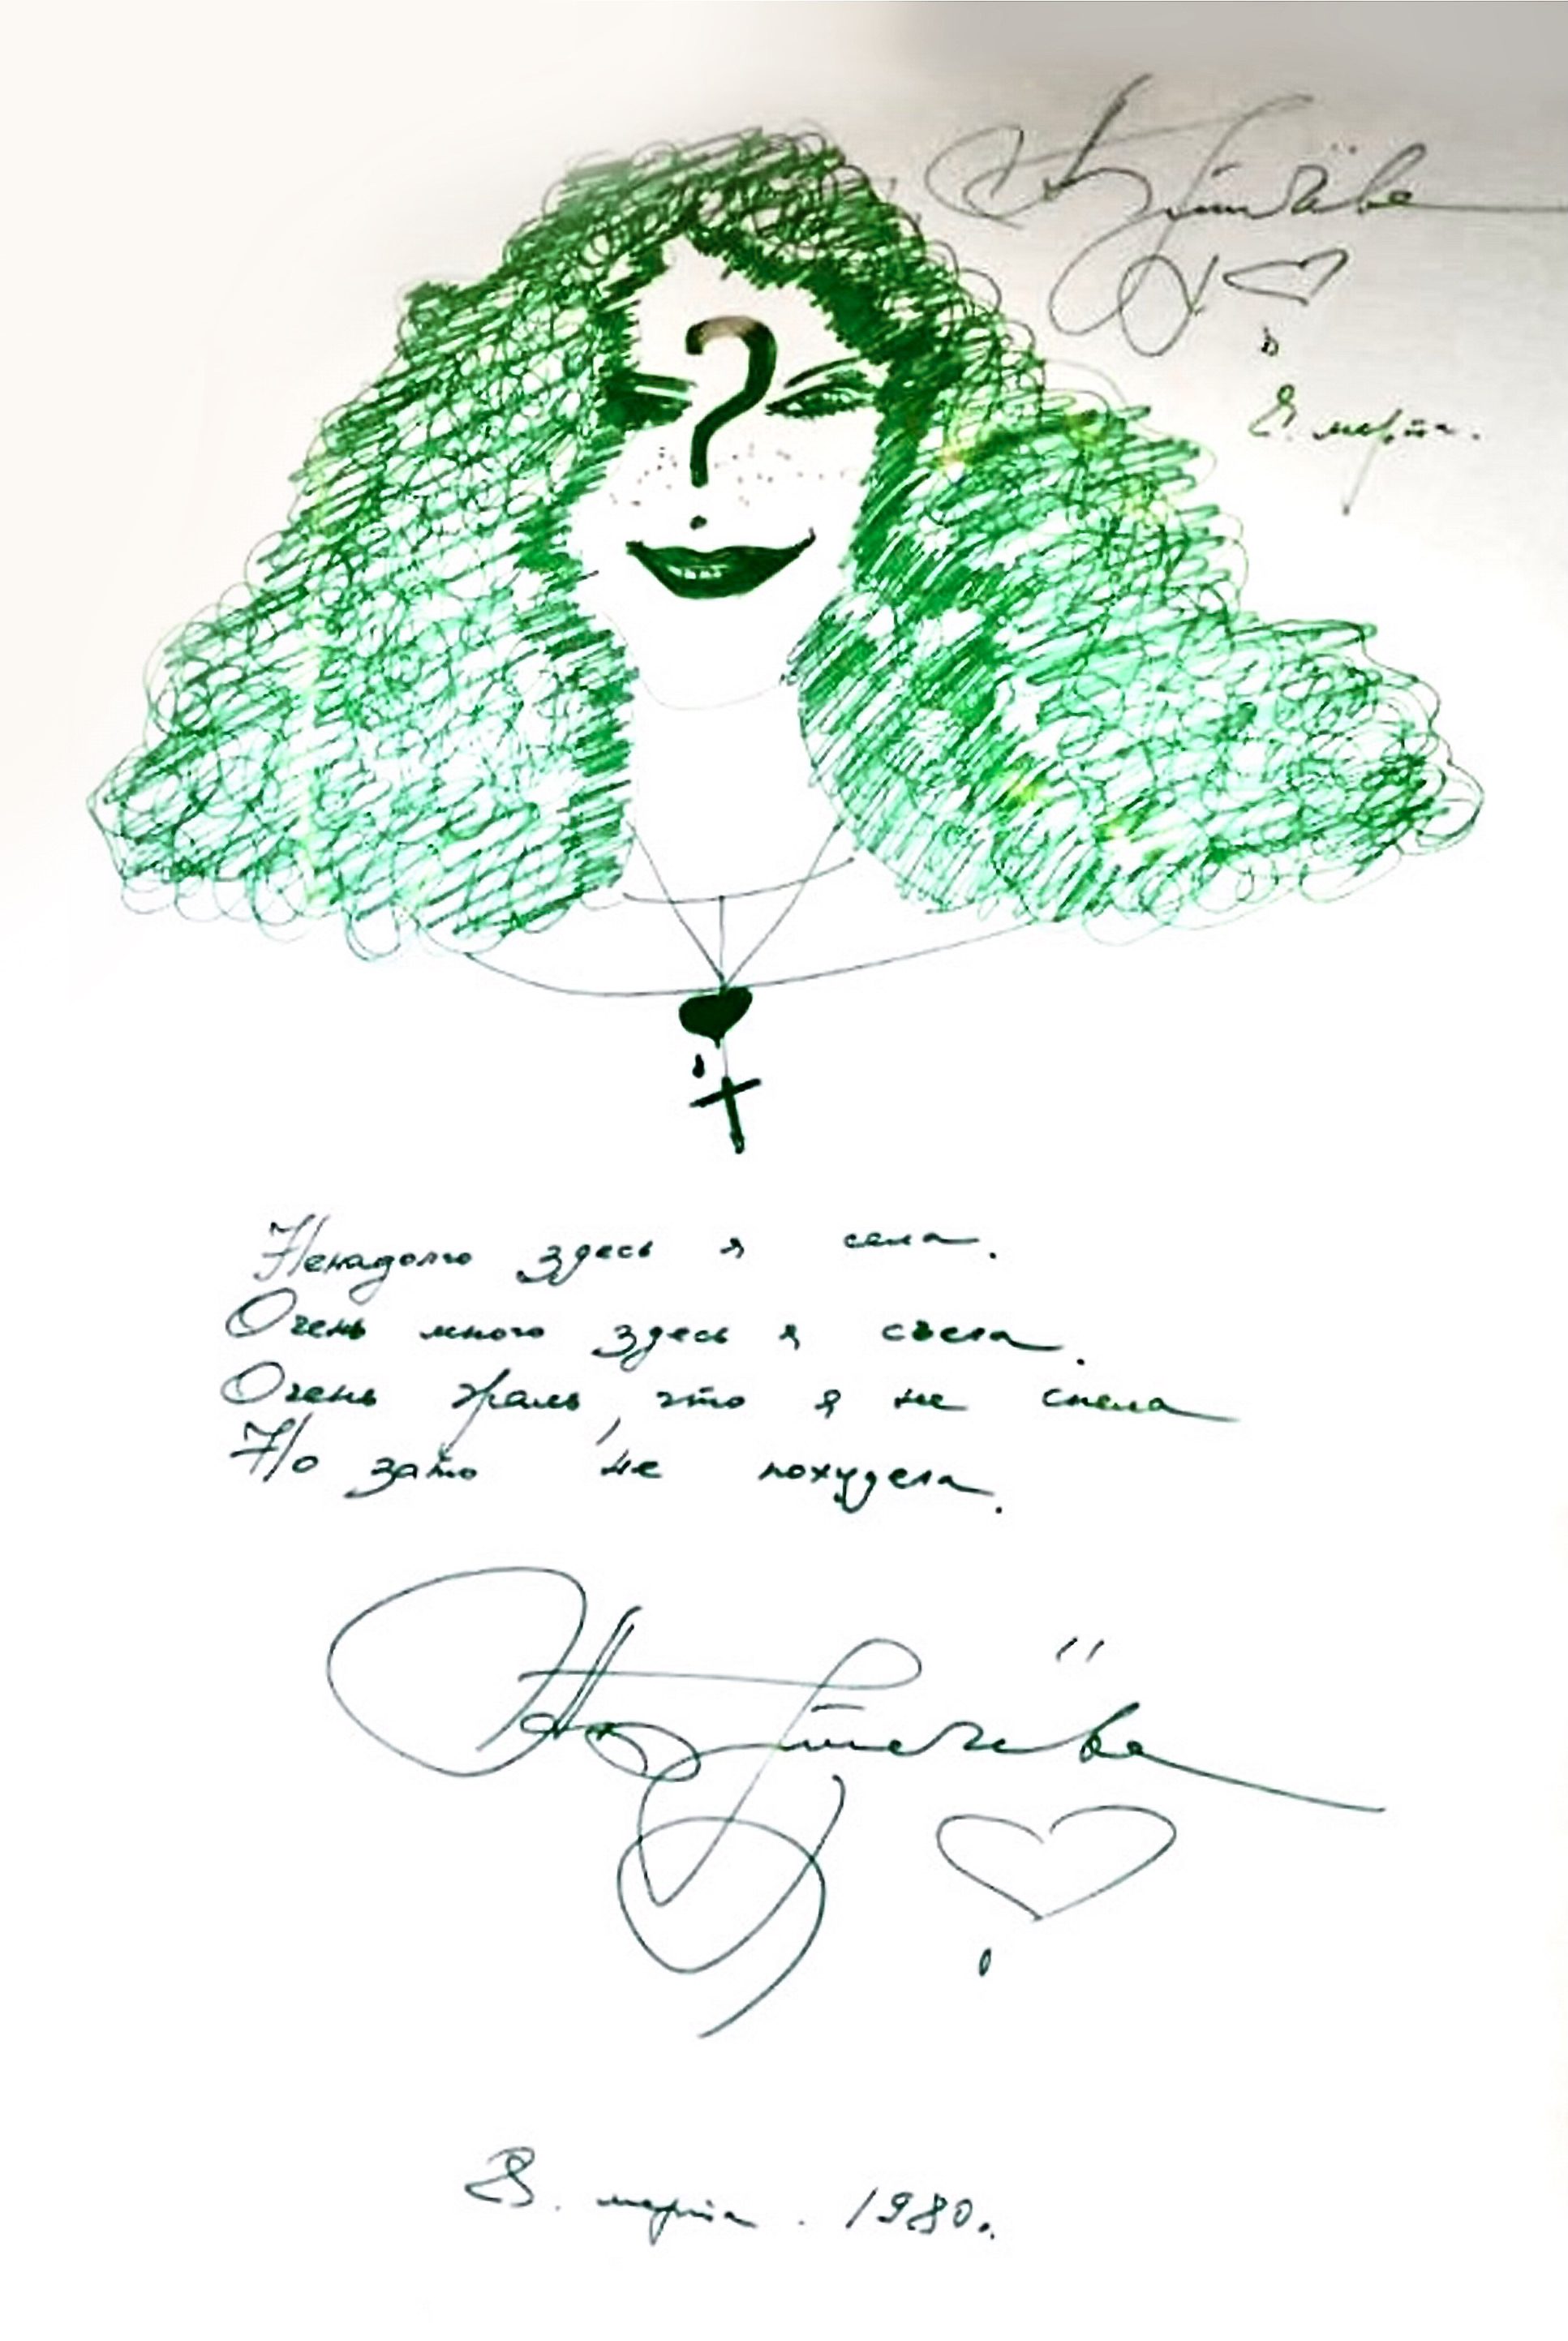 8. марта.
Ненадолго здесь я села.
Очень много здесь я съела.
Очень жаль, что я не спела
Но зато не похудела.
8. марта. 1980.